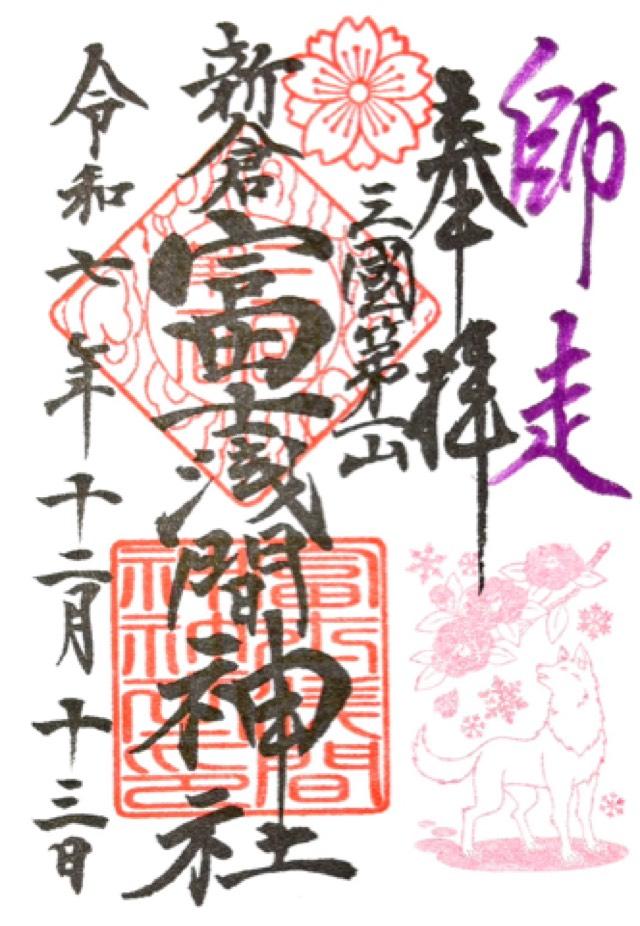 師走
奉拝
三國第一山
新倉富士浅間神社
令和七年十二月十三日